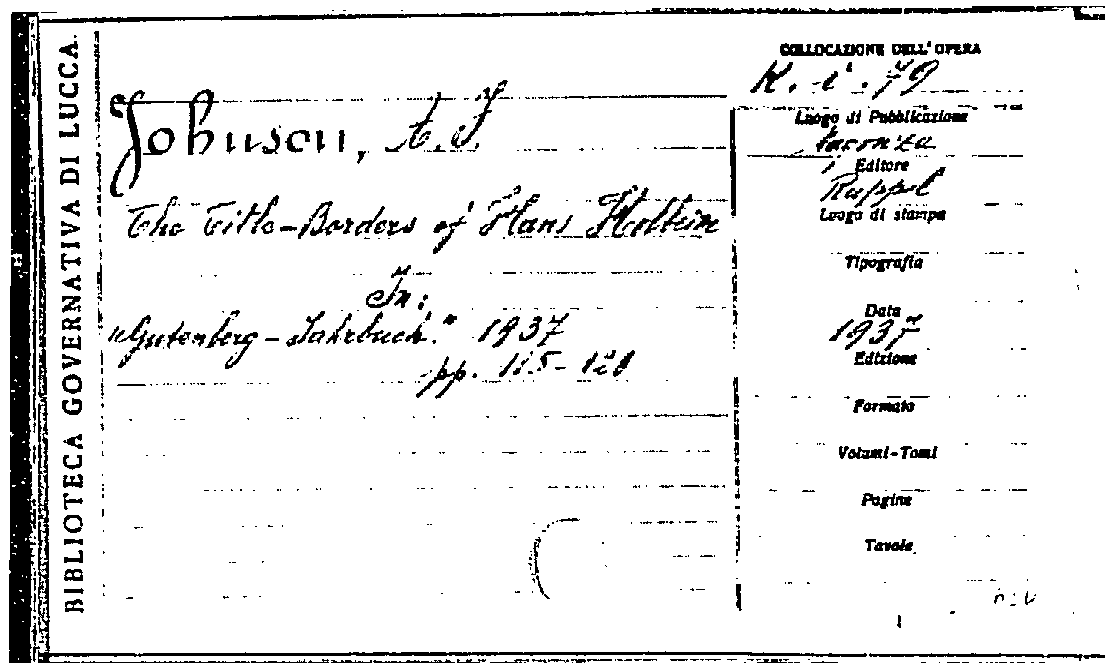 BIBLIOTECA GOVERNATIVA DI LUCCA
Johnson, A. F.
The Title-Borders of Hans Holbein
In:
"Gutenberg-Jahrbuch." 1937
pp. 115-120
COLLOCAZIONE DELL'OPERA
K. i. 79
Luogo di Pubblicazione
Magonza
Editore
Ruppel
Luogo di stampa
Tipografia
Data
1937
Edizione
Formato
Volumi-Tomi
Pagine
Tavole